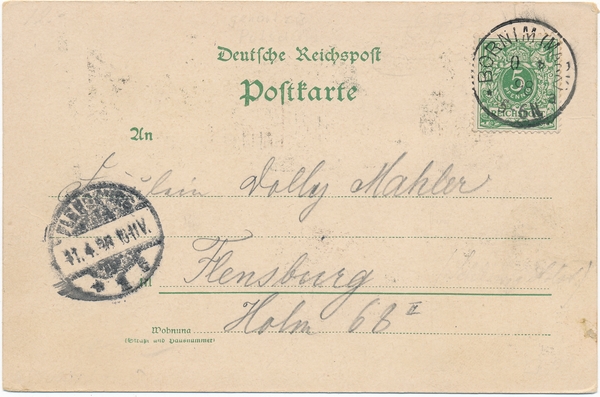 Deutsche Reichspost
Postkarte
BORNIM
5
An
Fräulein Dolly Mahler
FLENSBURG
11.4.98 10-11V.
in Flensburg
Holm 66 II
Wohnung
(Straße und Hausnummer)